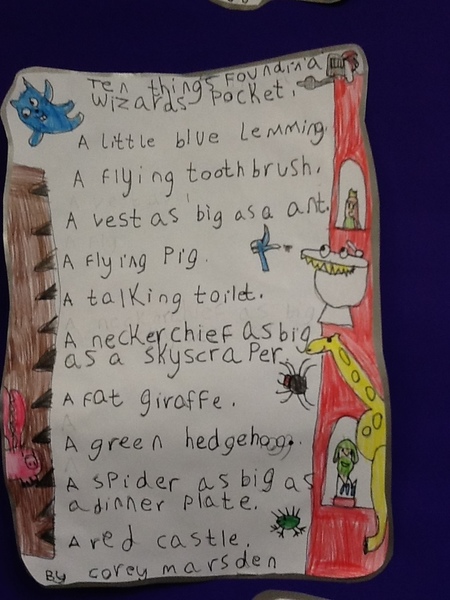 Ten things Found in a
Wizards Pocket.
A little blue Lemming.
A flying toothbrush.
A vest as big as a ant.
A flying Pig.
A talking toilet.
A neckerchief as big
as a skyscraper.
A Fat giraffe.
A green hedgehog.
A spider as big as
a dinner plate.
A red castle.
By corey marsden